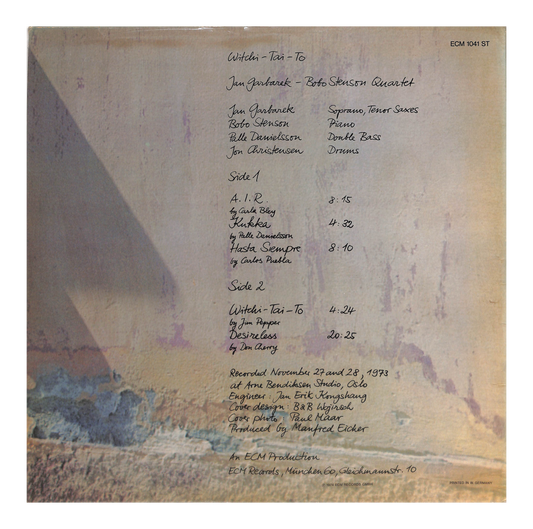 ECM 1041 ST
Witchi-Tai-To
Jan Garbarek - Bobo Stenson Quartet
Jan Garbarek Soprano, Tenor Saxes
Bobo Stenson Piano
Palle Danielsson Double Bass
Jon Christensen Drums
Side 1
A.I.R. 8:15
by Carla Bley
Kukka 4:32
by Palle Danielsson
Hasta Siempre 8:10
by Carlos Puebla
Side 2
Witchi-Tai-To 4:24
by Jim Pepper
Desireless 20:25
by Don Cherry
Recorded November 27 and 28, 1973
at Arne Bendiksen Studio, Oslo
Engineer: Jan Erik Kongshaug
Cover design: B&B Wojirsch
Cover photo: Paul Maar
Produced by Manfred Eicher
An ECM Production
ECM Records, München 60, Gleichmannstr. 10
PRINTED IN W. GERMANY